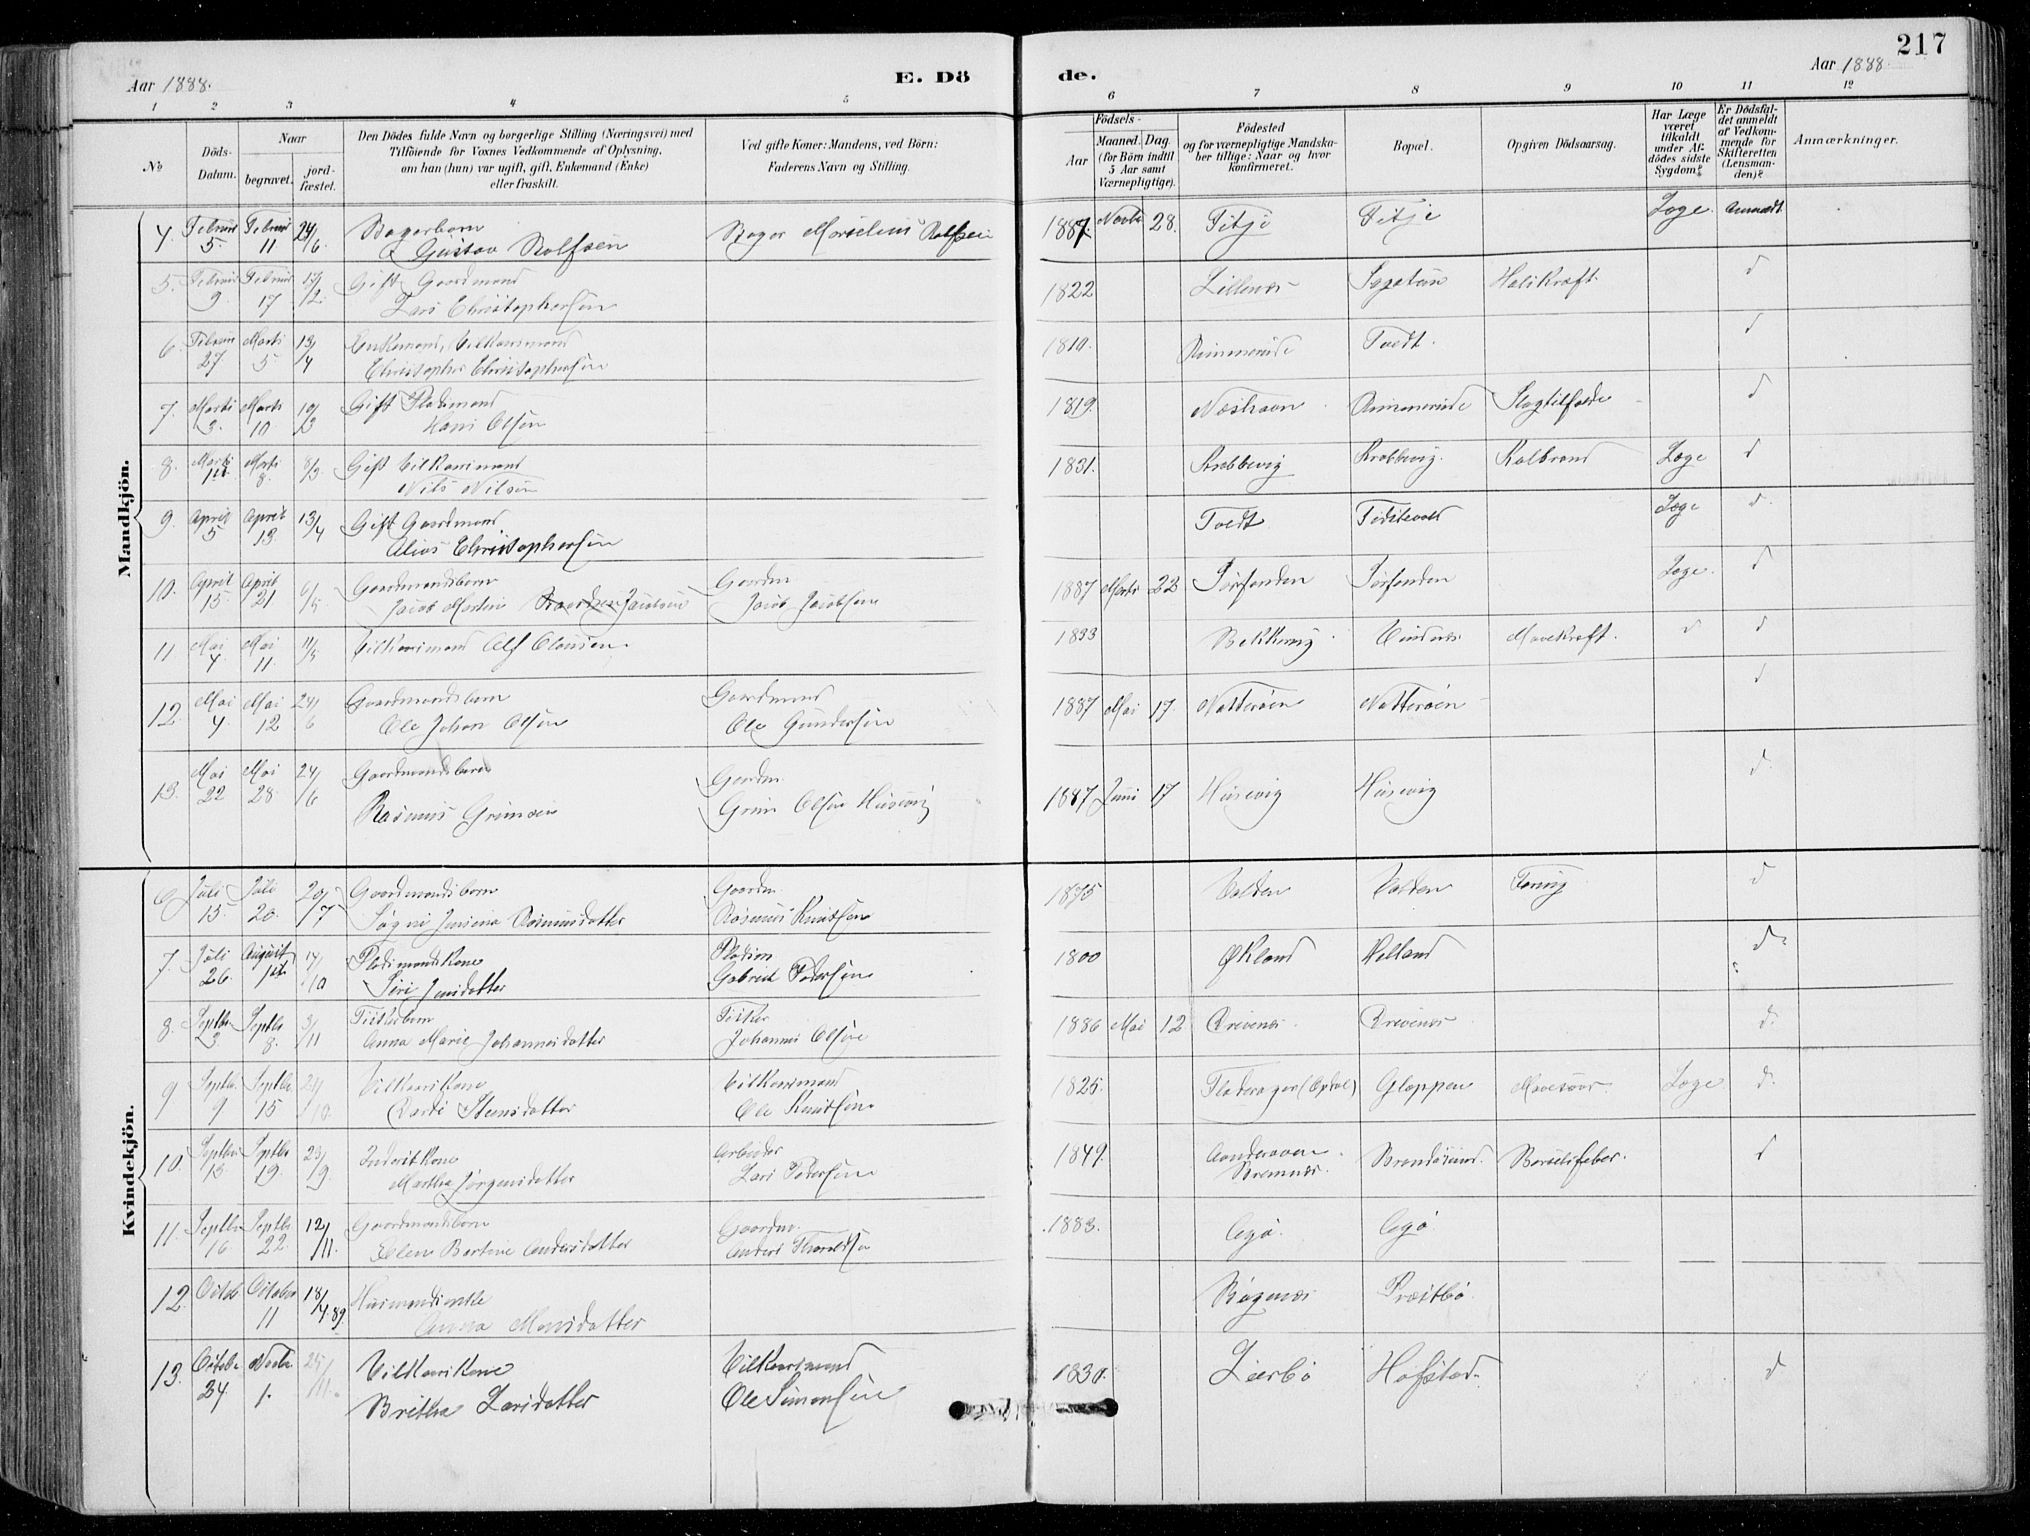 217
Aar 1888.
E. Dö
de.
Aar 1888.
1 2 3 4 5 6 7 8 9 10 11 12
No
Döds-
Datum.
Naar
begravet.
jord-
fæstet.
Den Dödes fulde Navn og borgerlige Stilling (Næringsvei) med
Tilföiende for Voxnes Vedkommende af Oplysning,
om han (hun) var ugift, gift, Enkemand (Enke)
eller fraskilt.
Ved gifte Koner: Mandens, ved Börn:
Faderens Navn og Stilling.
Födsels-
Aar
Maaned. Dag.
(for Börn indtil
5 Aar samt
Værnepligtige).
Födested
og for værnepligtige Mandska-
ber tillige: Naar og hvor
konfirmeret.
Bopæl.
Opgiven Dödsaarsag.
Har Læge
været
tilkaldt
under Af-
dödes sidste
Sygdom?
Er Dödsfal-
det anmeldt
af Vedkom-
mende for
Skifteretten
(Lensman-
den)?
Anmærkninger.
Mandkjön.
4. Februar 5. Februar 11 24/6 Bagerbarn
Gustav Rolfsen
Bager Marselius Rolfsen
1887. Novbr 28. Fitje Fitje Læge. Anmeldt
5. Februar 9. Februar 17 Gift Gaardmand
Lars Christophersen
1822 Lillenes Sagatun Halskræft d
6. Februar 27. Marts 5. 13/4 Enkemand, Vilkaarsmand
Christopher Christophersen
1810. Rimmereide Tvedt. d
7. Marts 3. Marts 10 Gift Pladsmand
Hans Olsen
1819. Næshavn Rimmereide Slagtilfælde d
8. Marts 1st Marts 8. 8/3 Gift Vilkaarsmand
Nils Nilsen
1831. Krabbevig Krabbevig. Kolbrand Læge d
9. April 5 April 13. 13/4 Gift Gaardmand
Alias Christophersen
Tvedt Læge d.
10. April 15. April 21 6/5 Gaardmandsbarn
Jacob Martin Jacobsen
Gaardm
Jacob Jacobsen
1887 Marts 22 Sørfonden Sørfonden Læge. d
11 Mai 4. Mai 11. 11/5 Vilkaarsmand Alf Clausen
1833 Bekkevig. Vindenes Mavekræft. d d
12. Mai 4. Mai 12 24/6 Gaardmandsbarn
Ole Johan Olsen
Gaardmand
Ole Gundersen
1887 Mai 17. Natterøen Natterøen d
13. Mai 22 Mai 28. 24/6 Gaardmandsbarn
Rasmus Grimsen
Gaardm
Grim Olsen Husevig
1887 Juni 17 Husevig Husevig d.
Kvindekjön.
6 Juli 15. Juli 20. 20/7 Gaardmandsbarn
Søgni Jensine Rasmusdatter
Gaardm.
Rasmus Knutsen
1875 Valden Valden Tæring d
7. Juli 26. August 1st. 17/10 Pladsmandskone
Siri Jensdatter
Pladsm
Gabriel Pedersen
1800 Økland Helland d.
8. Septbr. 2 Septbr 8. 3/11 Fiskerbarn
Anna Marie Johannesdatter
Fisker
Johannes Olsen
1886 Mai 12 Grevenes. Grevenes d.
9 Septbr. 9 Septbr. 15 Vilkaarskone
Steensdatter
Vilkaarsmand
Ole Knutsen
1825. Fladerager (Opdal) Gloppen Mavesaar. Læge d.
10. Septbr 13 Septbr. 19. 23/9 Inderstkone
Martha Jørgensdatter
Arbeider
Lars Pedersen
1849. Bremnes. Brandasund. Barselsfeber. d
11. Septbr 16 Septbr 22. 12/11. Gaardmandsbarn
Elen Bertine Andersdatter
Gaardm.
Anders Tharaldsen
1883. Agø. Agø
12. Octob October 11 18/4 89. Husmandsenke
Anna Monsdatter
Bøgenes Præstbø.
13. Octobr 24. Novbr 1. 25/11. Vilkaarskone
Britha Larsdatter
Vilkaarsmand
Ole Simonsen
1830. Lierbø Hofstad. d